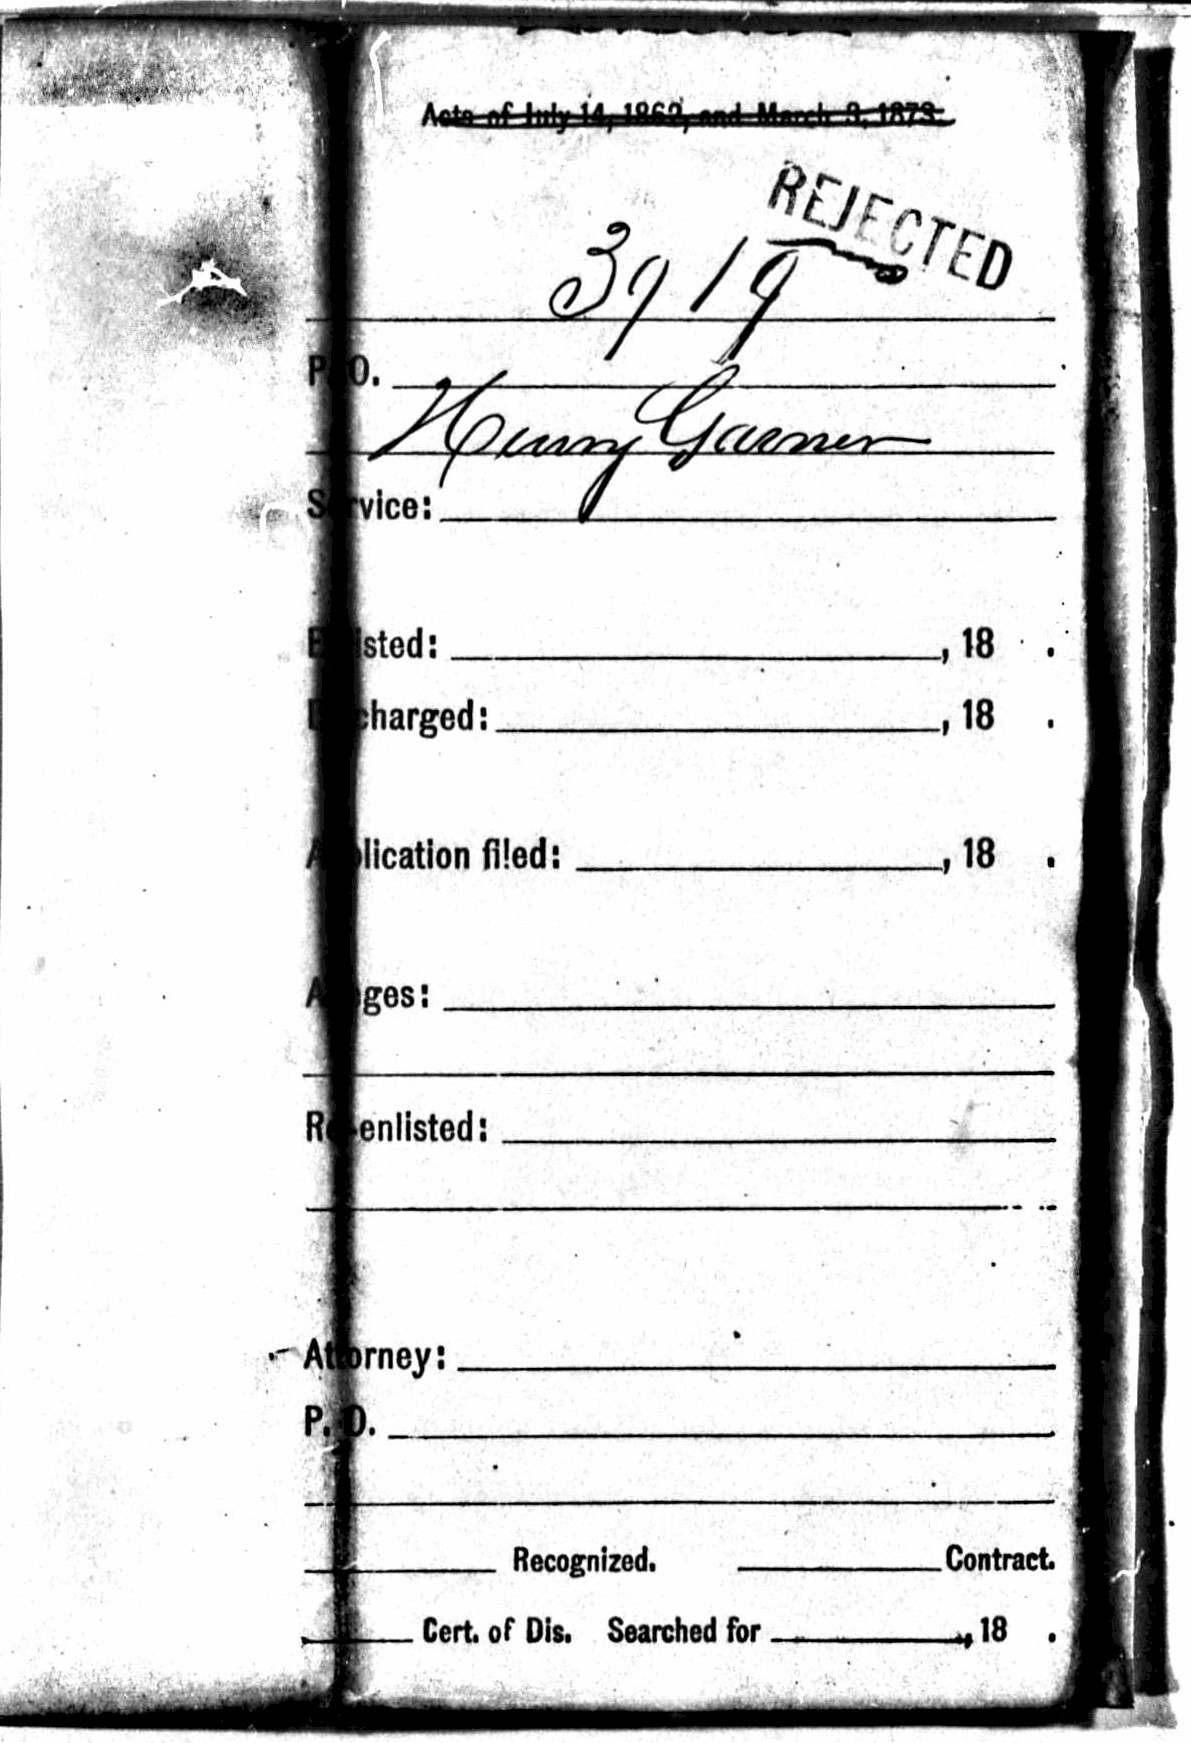 Acts of July 14, 1862, and March 3, 1873.
REJECTED
3919
P. O.
Henry Garner
Service:
Enlisted: , 18 .
Discharged: , 18 .
Application filed: , 18 .
Alleges:
Re-enlisted:
Attorney:
P. O.
Recognized. Contract.
Cert. of Dis. Searched for , 18 .